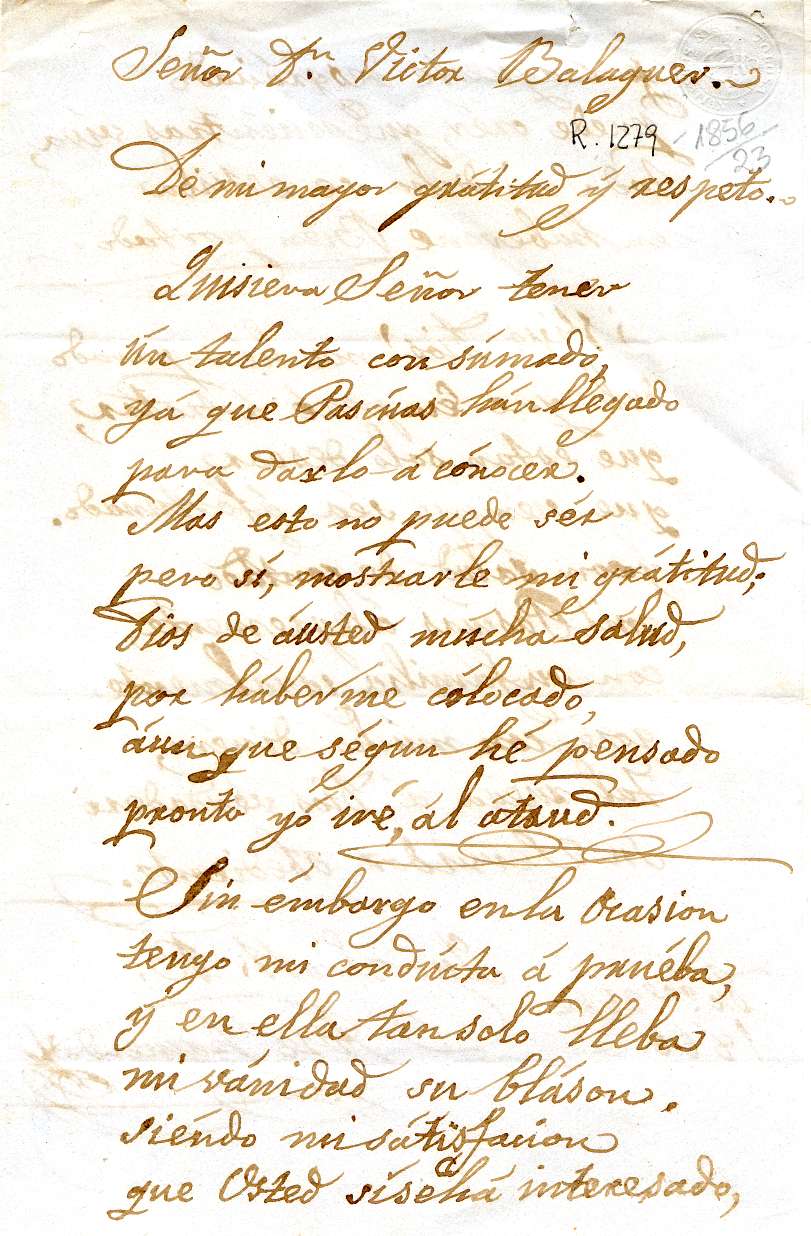 Señor Dⁿ. Victor Balaguer.
R. 1279
1856
23
De mi mayor grátitud ý respeto..
Quisiera Señor tener
ún talento consúmado,
yá que Pascúas hán llegado
para darlo á cónocer.
Mas esto no puede sér
pero sí, mostrarle mi grátitud;
Dios de áusted muchá salud,
por háberme cólocado,
áun que ségun hé pensado
pronto yó iré, ál átaud.
Sin émbargo en la Ocasion
tengo mi condúcta á pruéba,
ý en ella tan solo lleba
mi vánidad su bláson.
siéndo mi sátisfacion
que Usted sísehá interesado,